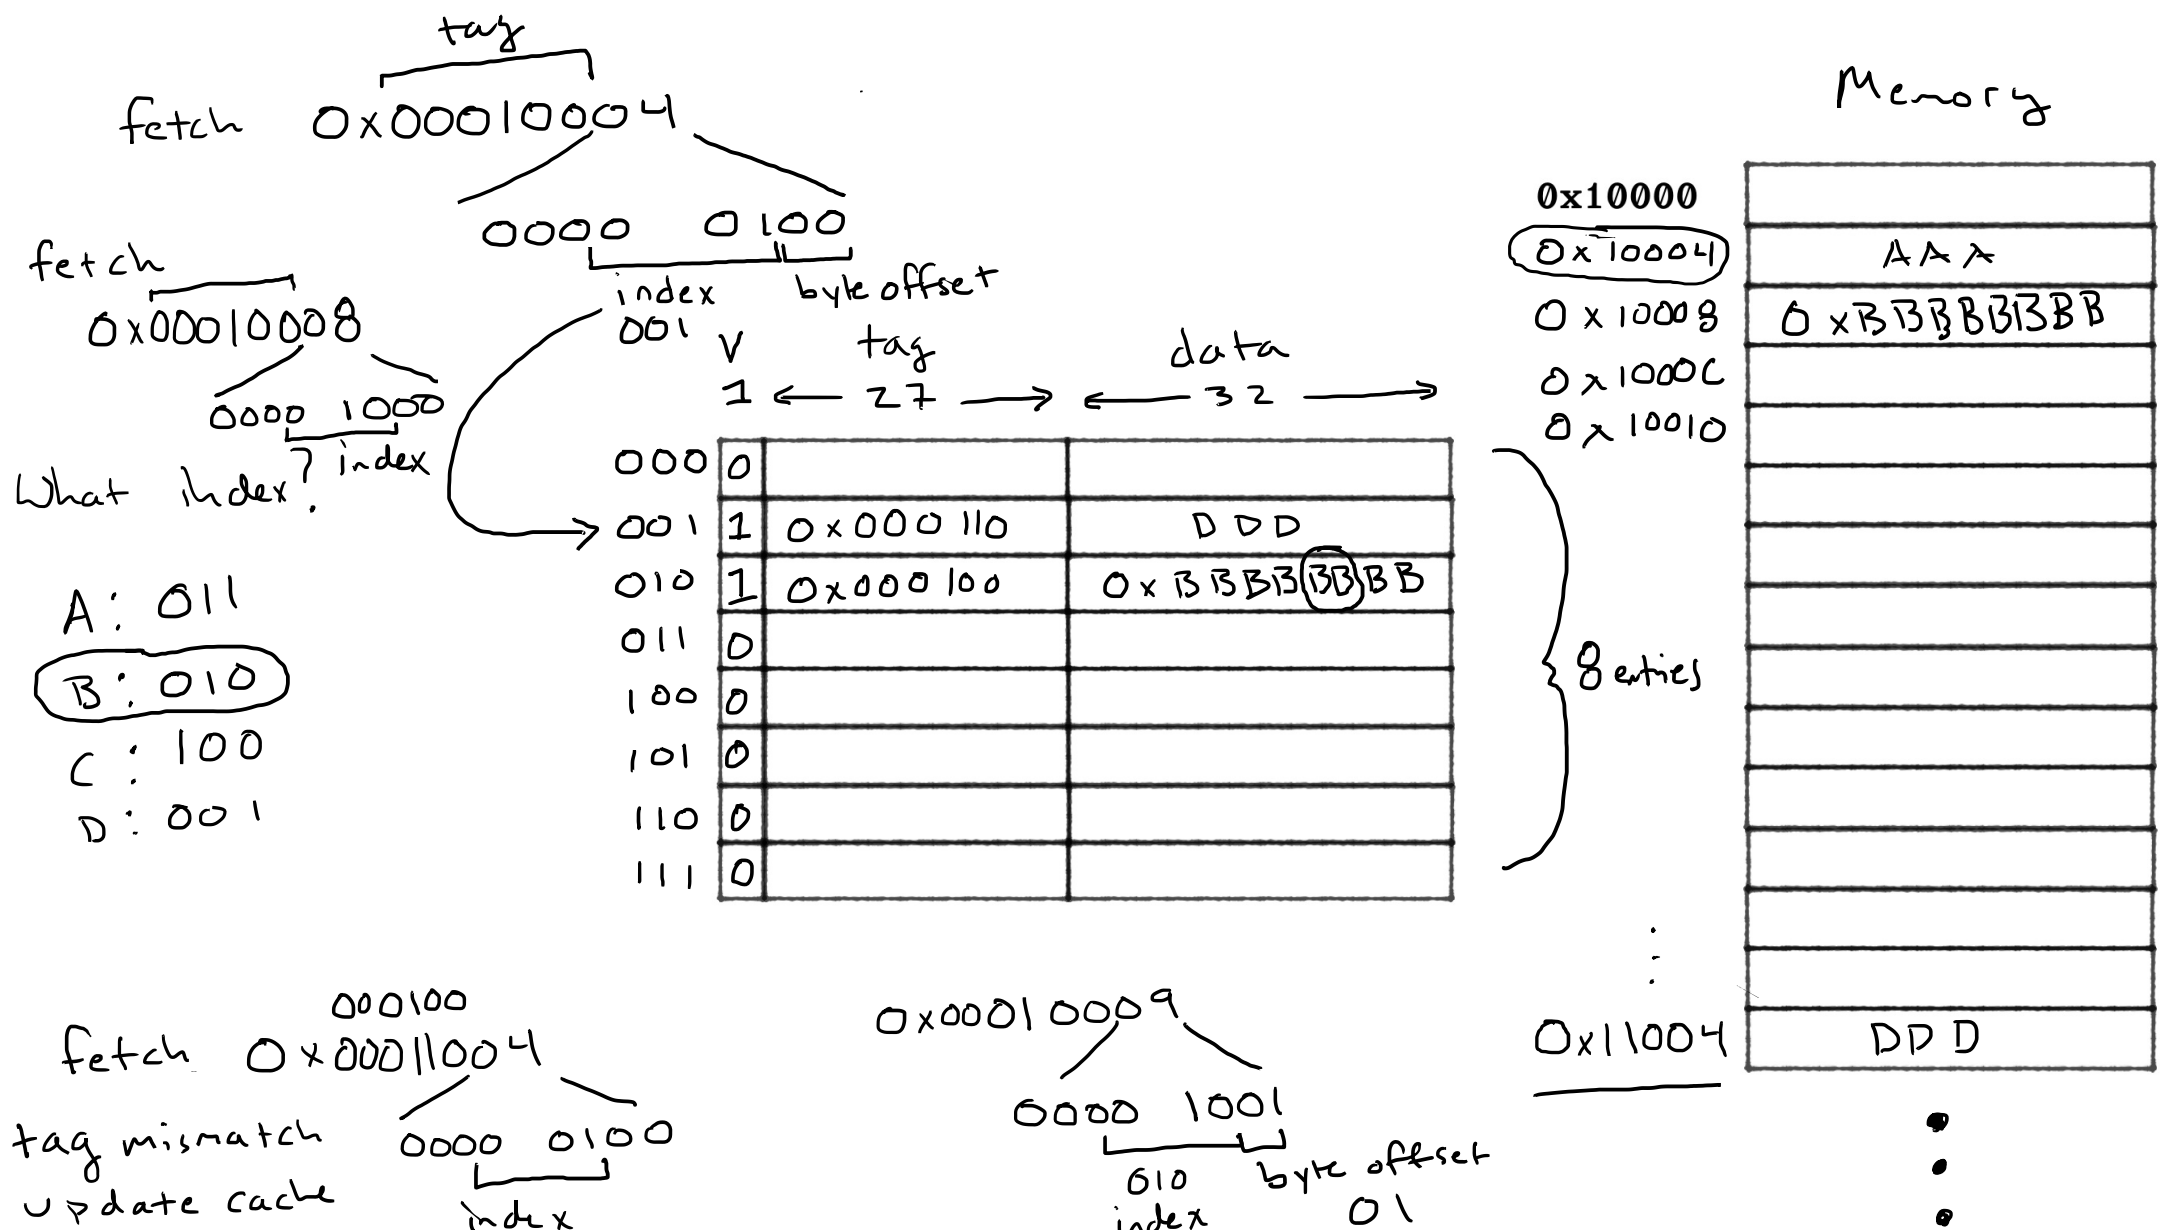 tag
fetch 0x00010004
0000 0100
index byte offset
001
fetch
0x00010008
0000 1000
index
What index?
A: 011
B: 010
C: 100
D: 001
V tag data
1 27 32
000 0
001 1 0x000110 DDD
010 1 0x000100 0xBBBBBBBB
011 0
100 0
101 0
110 0
111 0
8 entries
Memory
0x10000
0x10004 AAA
0x10008 0xBBBBBBBB
0x1000C
0x10010
0x11004 DDD
000100
fetch 0x00011004
0000 0100
index
tag mismatch
update cache
0x00010009
0000 1001
010 byte offset
index 01